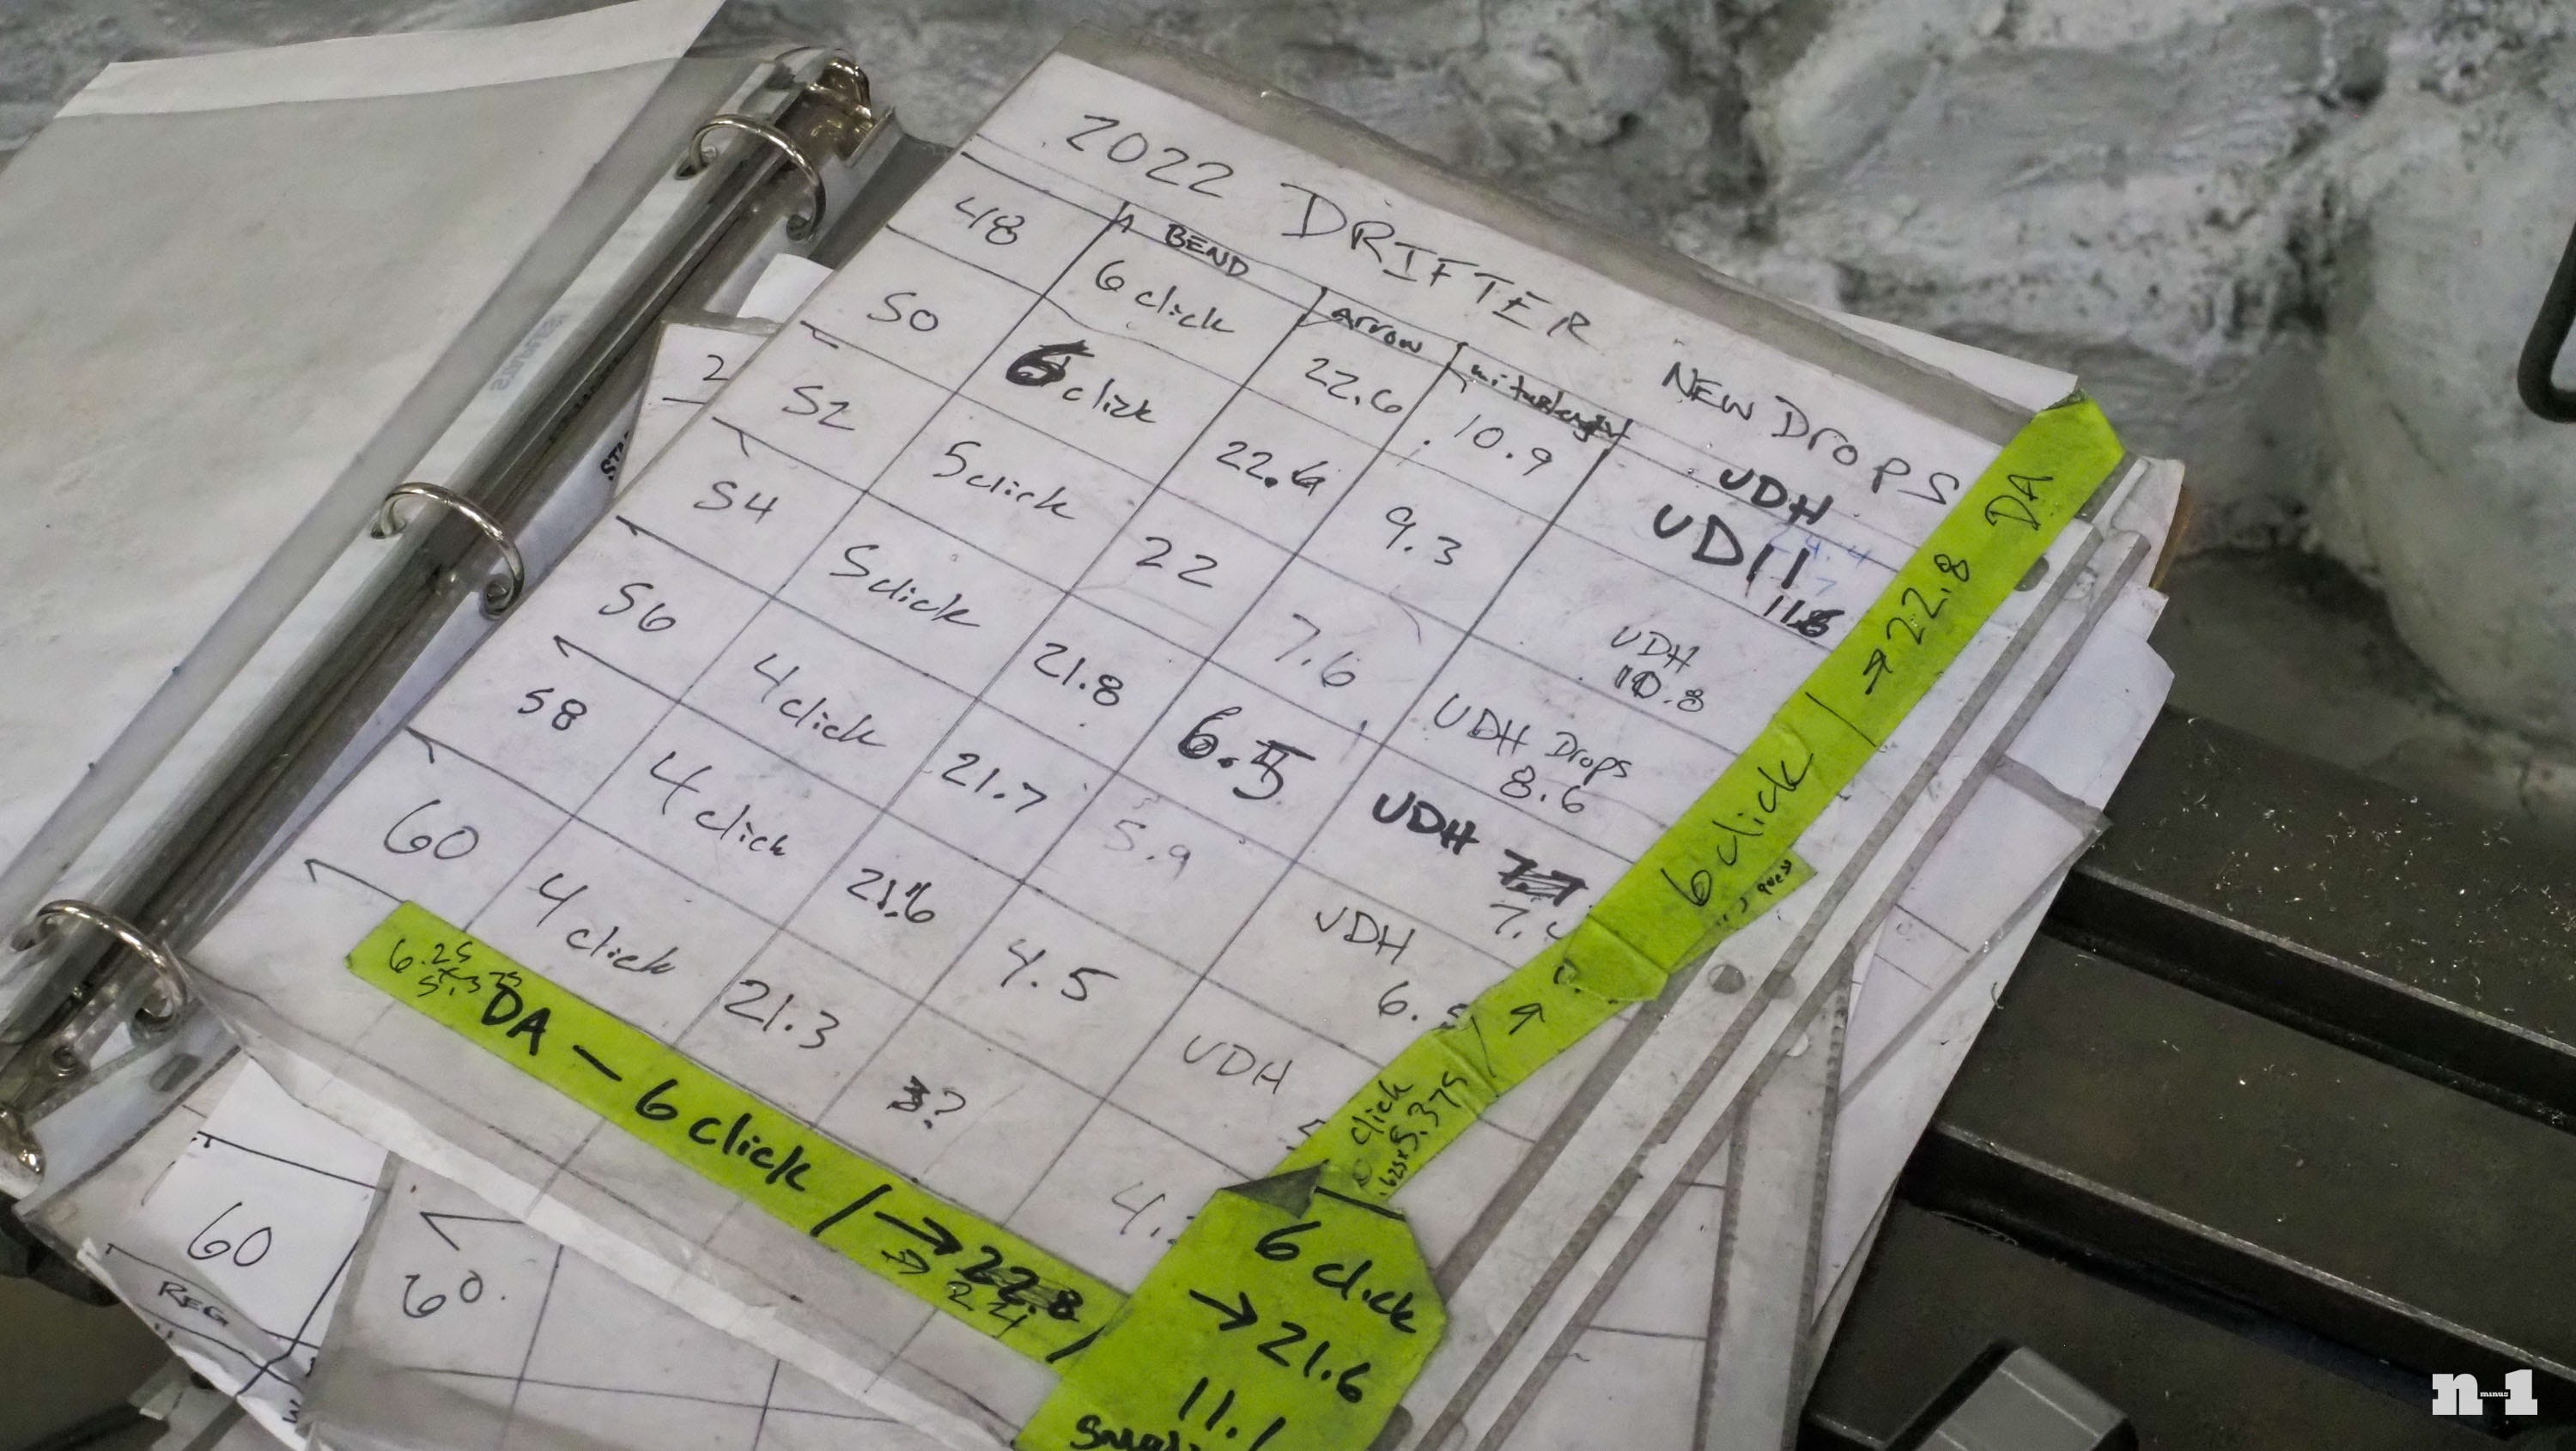 2022 DRIFTER NEW DROPS
BEND Arrow UDH
48 6 click 22.6 10.9 UDH
50 6 click 22.6 9.3 UDH 10.8
52 5 click 22 7.6 UDH Drops 8.6
54 5 click 21.8 6.5 UDH 7.
56 4 click 21.7 5.9 UDH 6.
58 4 click 21.6 4.5 UDH
60 4 click 21.3 ? 4.
6.25
DA – 6 click / → 22.8
6 click / → 22.8 DA
click
5.375
6 click
→ 21.6
11.1
2
60
REG
60.
n minus 1